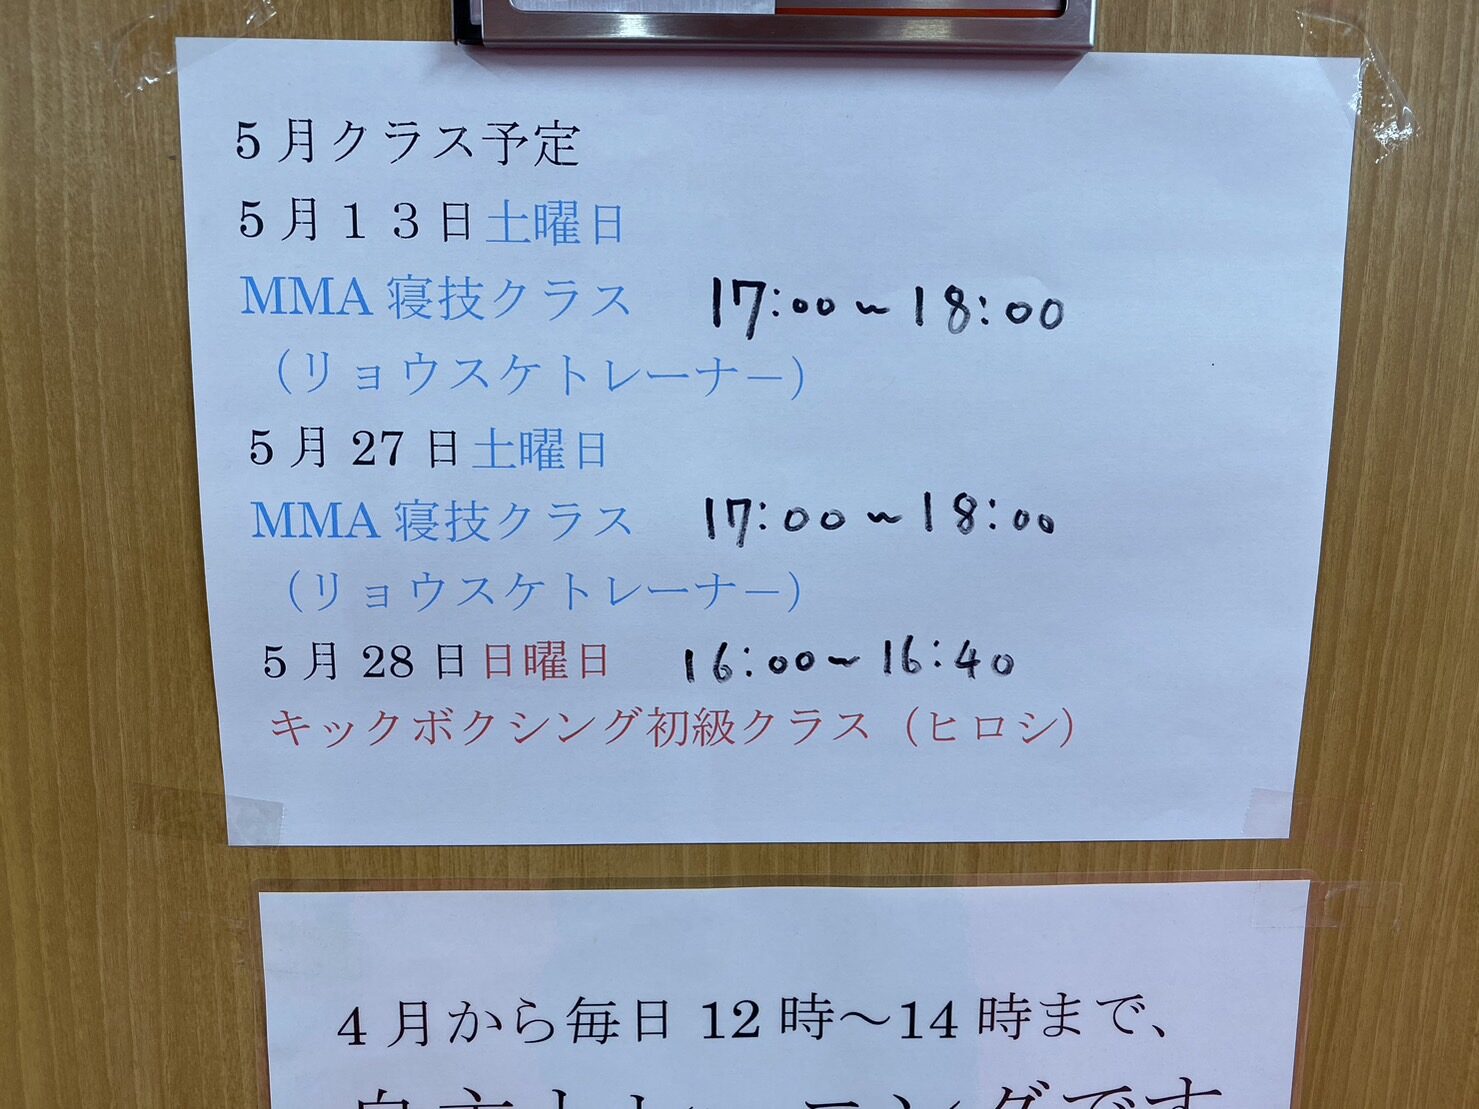 5月クラス予定
5月13日土曜日
MMA寝技クラス 17:00~18:00
（リョウスケトレーナー）
5月27日土曜日
MMA寝技クラス 17:00~18:00
（リョウスケトレーナー）
5月28日日曜日 16:00~16:40
キックボクシング初級クラス（ヒロシ）
4月から毎日12時～14時まで、
自主トレーニングです